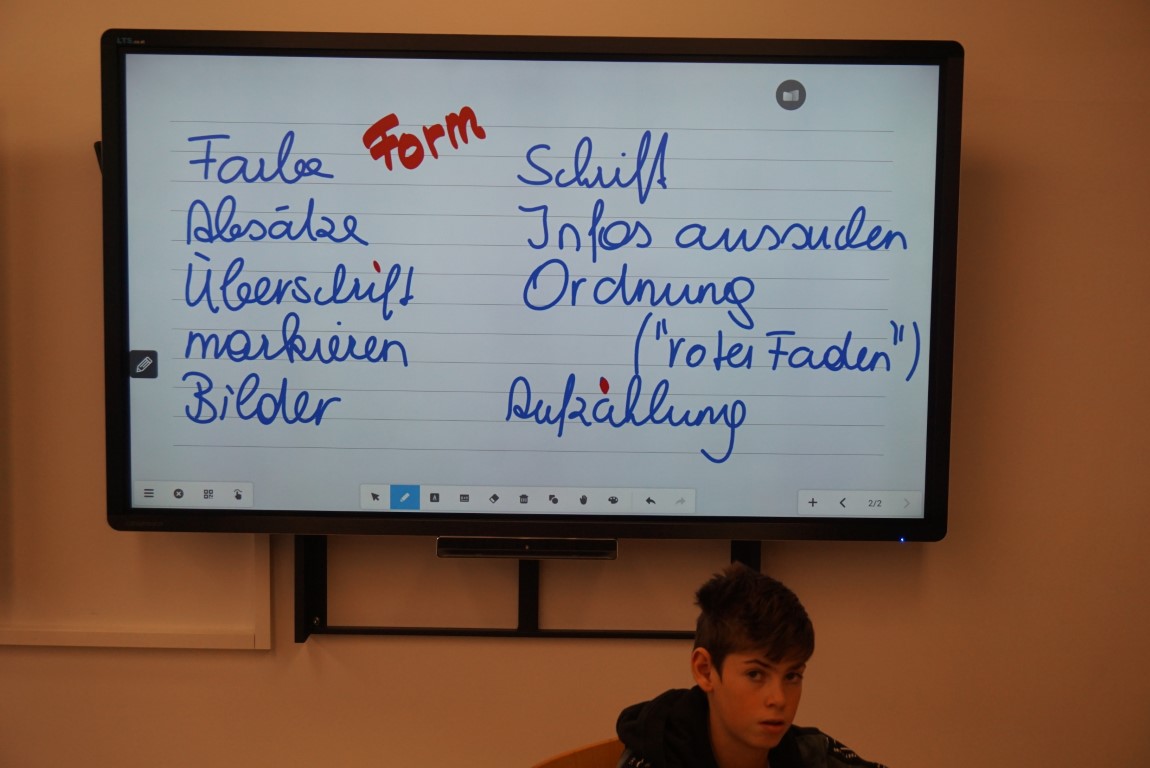 Form
Farbe
Absätze
Überschrift
markieren
Bilder
Schrift
Infos aussuchen
Ordnung
("roter Faden")
Aufzählung
2/2